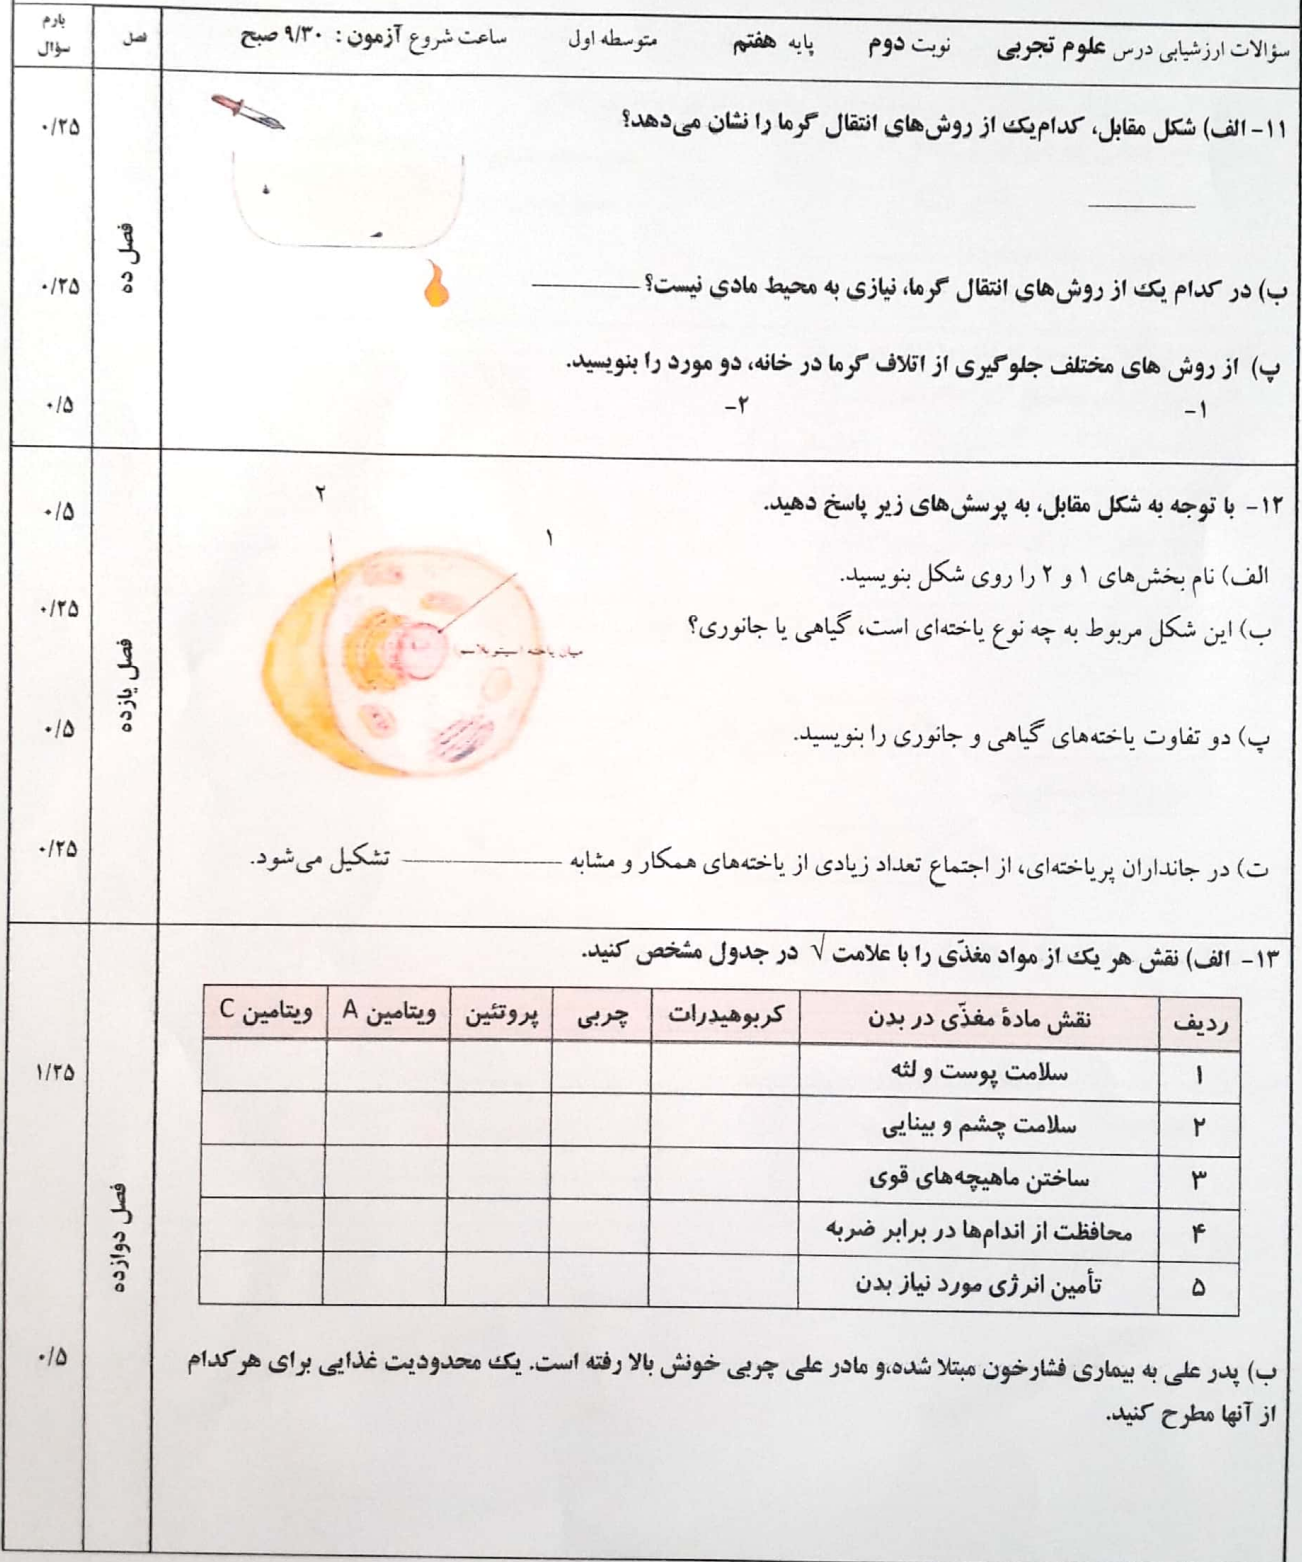 سؤالات ارزشیابی درس علوم تجربی نوبت دوم پایه هفتم متوسطه اول ساعت شروع آزمون : ۹/۳۰ صبح فصل بارم سؤال
۱۱- الف) شکل مقابل، کدام‌یک از روش‌های انتقال گرما را نشان می‌دهد؟ ۰/۲۵
فصل ده
ب) در کدام یک از روش‌های انتقال گرما، نیازی به محیط مادی نیست؟ ۰/۲۵
پ) از روش های مختلف جلوگیری از اتلاف گرما در خانه، دو مورد را بنویسید.
۱- ۲- ۰/۵
۱۲- با توجه به شکل مقابل، به پرسش‌های زیر پاسخ دهید. ۰/۵
۲
۱
الف) نام بخش‌های ۱ و ۲ را روی شکل بنویسید.
ب) این شکل مربوط به چه نوع یاخته‌ای است، گیاهی یا جانوری؟ ۰/۲۵
میان یاخته (سیتوپلاسم)
فصل یازده
پ) دو تفاوت یاخته‌های گیاهی و جانوری را بنویسید. ۰/۵
ت) در جانداران پریاخته‌ای، از اجتماع تعداد زیادی از یاخته‌های همکار و مشابه تشکیل می‌شود. ۰/۲۵
۱۳- الف) نقش هر یک از مواد مغذّی را با علامت √ در جدول مشخص کنید.
ردیف نقش مادهٔ مغذّی در بدن کربوهیدرات چربی پروتئین ویتامین A ویتامین C
۱ سلامت پوست و لثه ۱/۲۵
۲ سلامت چشم و بینایی
۳ ساختن ماهیچه‌های قوی
۴ محافظت از اندام‌ها در برابر ضربه
۵ تأمین انرژی مورد نیاز بدن
فصل دوازده
ب) پدر علی به بیماری فشارخون مبتلا شده،و مادر علی چربی خونش بالا رفته است. یک محدودیت غذایی برای هر کدام ۰/۵
از آنها مطرح کنید.